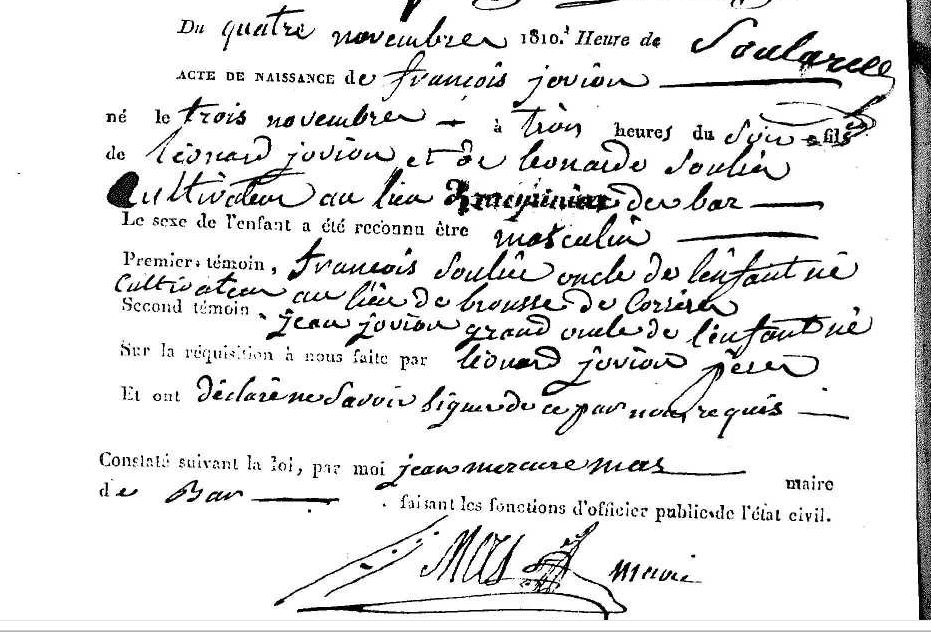 Du quatre novembre 1810. Heure de
ACTE DE NAISSANCE de françois jovion
né le trois novembre à trois heures du Soir fils
de léonard jovion et de leonarde Soulier
Cultivateur au lieu de bar
Le sexe de l'enfant a été reconnu être masculin
Premier témoin, françois Soulier oncle de l'enfant né
Cultivateur au lieu de brousse de Corrèze
Second témoin jean jovion grand oncle de l'enfant né
Sur la réquisition à nous faite par léonard jovion père
Et ont déclaré ne Savoir Signer de ce par nous requis
Constaté suivant la loi, par moi jean mercure mas maire
de Bar faisant les fonctions d'officier public de l'état civil.
Mas maire